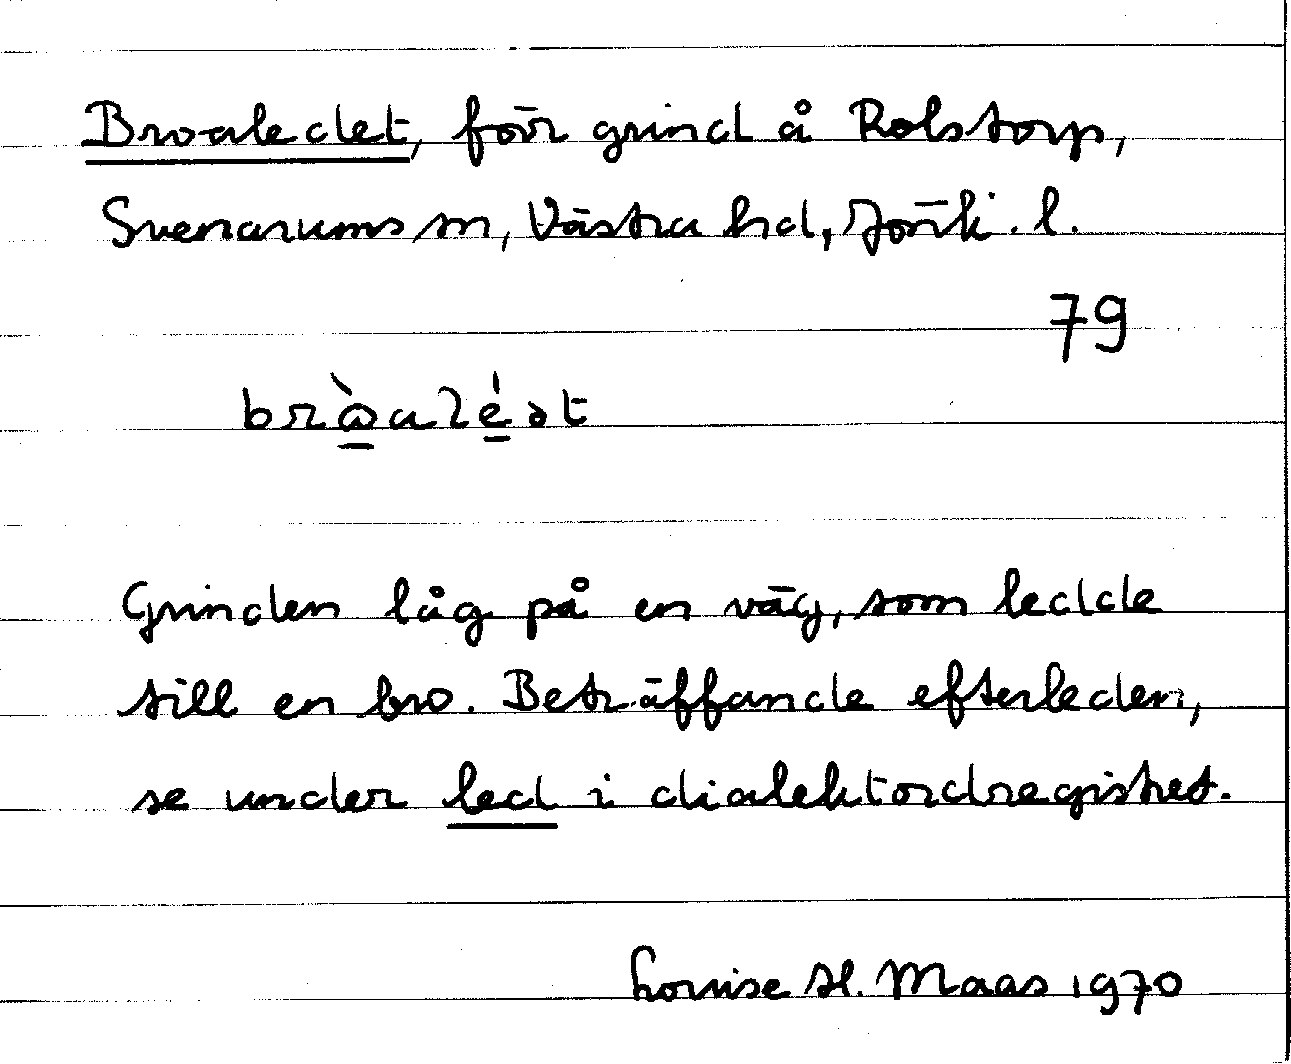 Broaledet, förr grind å Rolstorp,
Svenarums sn, Västra hd, Jönk. l.
79
Grinden låg på en väg, som ledde
till en bro. Beträffande efterleden,
se under led i dialektordregistret.
Louise H. Maas 1970